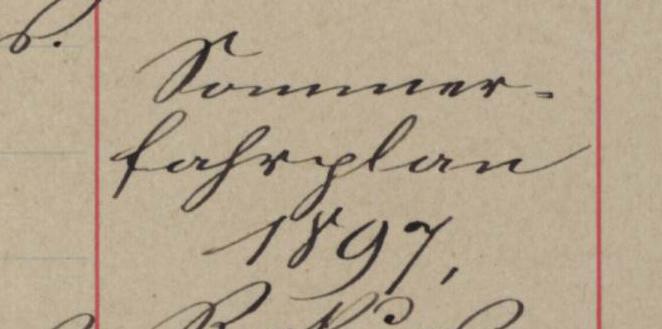 Sommer-
fahrplan
1897,